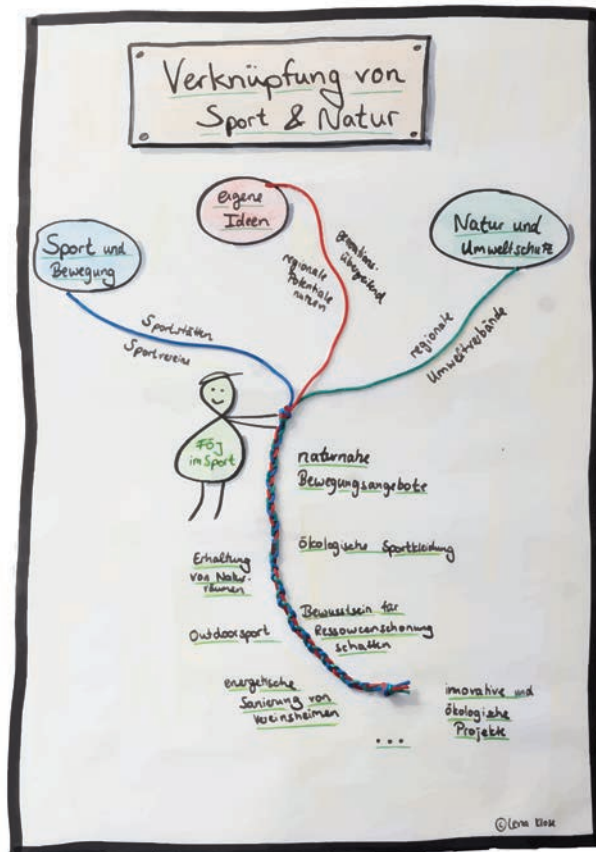 Verknüpfung von
Sport & Natur
eigene
Ideen
Sport und
Bewegung
Natur und
Umweltschutz
generations-
übergreifend
regionale
Potentiale
nutzen
Sportstätten
Sportvereine
regionale
Umweltverbände
FÖJ
im Sport
naturnahe
Bewegungsangebote
ökologische Sportkleidung
Erhaltung
von Natur-
räumen
Bewusstsein für
Ressourcenschonung
schaffen
Outdoorsport
energetische
Sanierung von
Vereinsheimen
innovative und
ökologische
Projekte
...
© Lena Klose